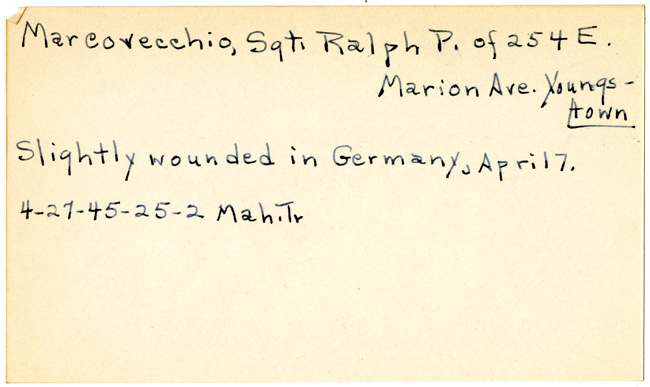 Marcovecchio, Sgt. Ralph P. of 254 E.
Marion Ave. Youngs-
town
Slightly wounded in Germany, April 7.
4-27-45-25-2 Mah.Tr